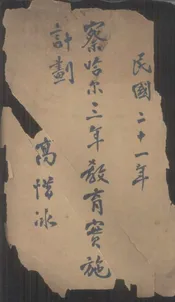 民國二十一年
察哈尔三年教育實施
計劃
高惜冰